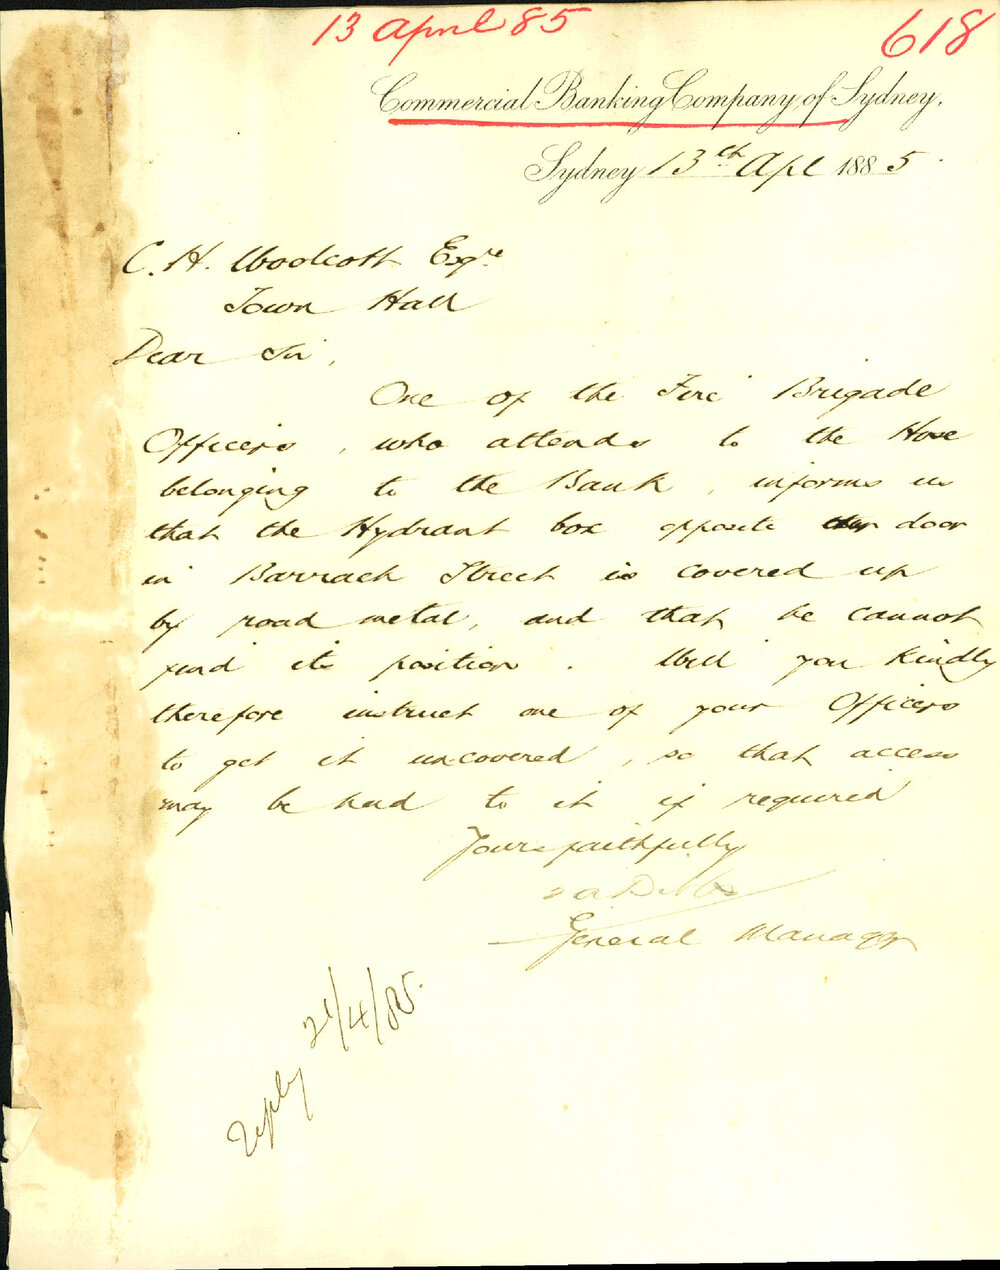 13 April 85
618
Commercial Banking Company of Sydney.
Sydney 13th Apl 1885.
C. H. Woolcott Esqre
Town Hall
Dear Sir,
One of the Fire Brigade
Officers, who attends to the Hose
belonging to the Bank, informs us
that the Hydrant box opposite our door
in Barrack Street is covered up
by road metal, and that he cannot
find its position. Will you kindly
therefore instruct one of your Officers
to get it uncovered, so that access
may be had to it if required
Yours faithfully
T A Dibbs
General Manager
Reply 21/4/85.